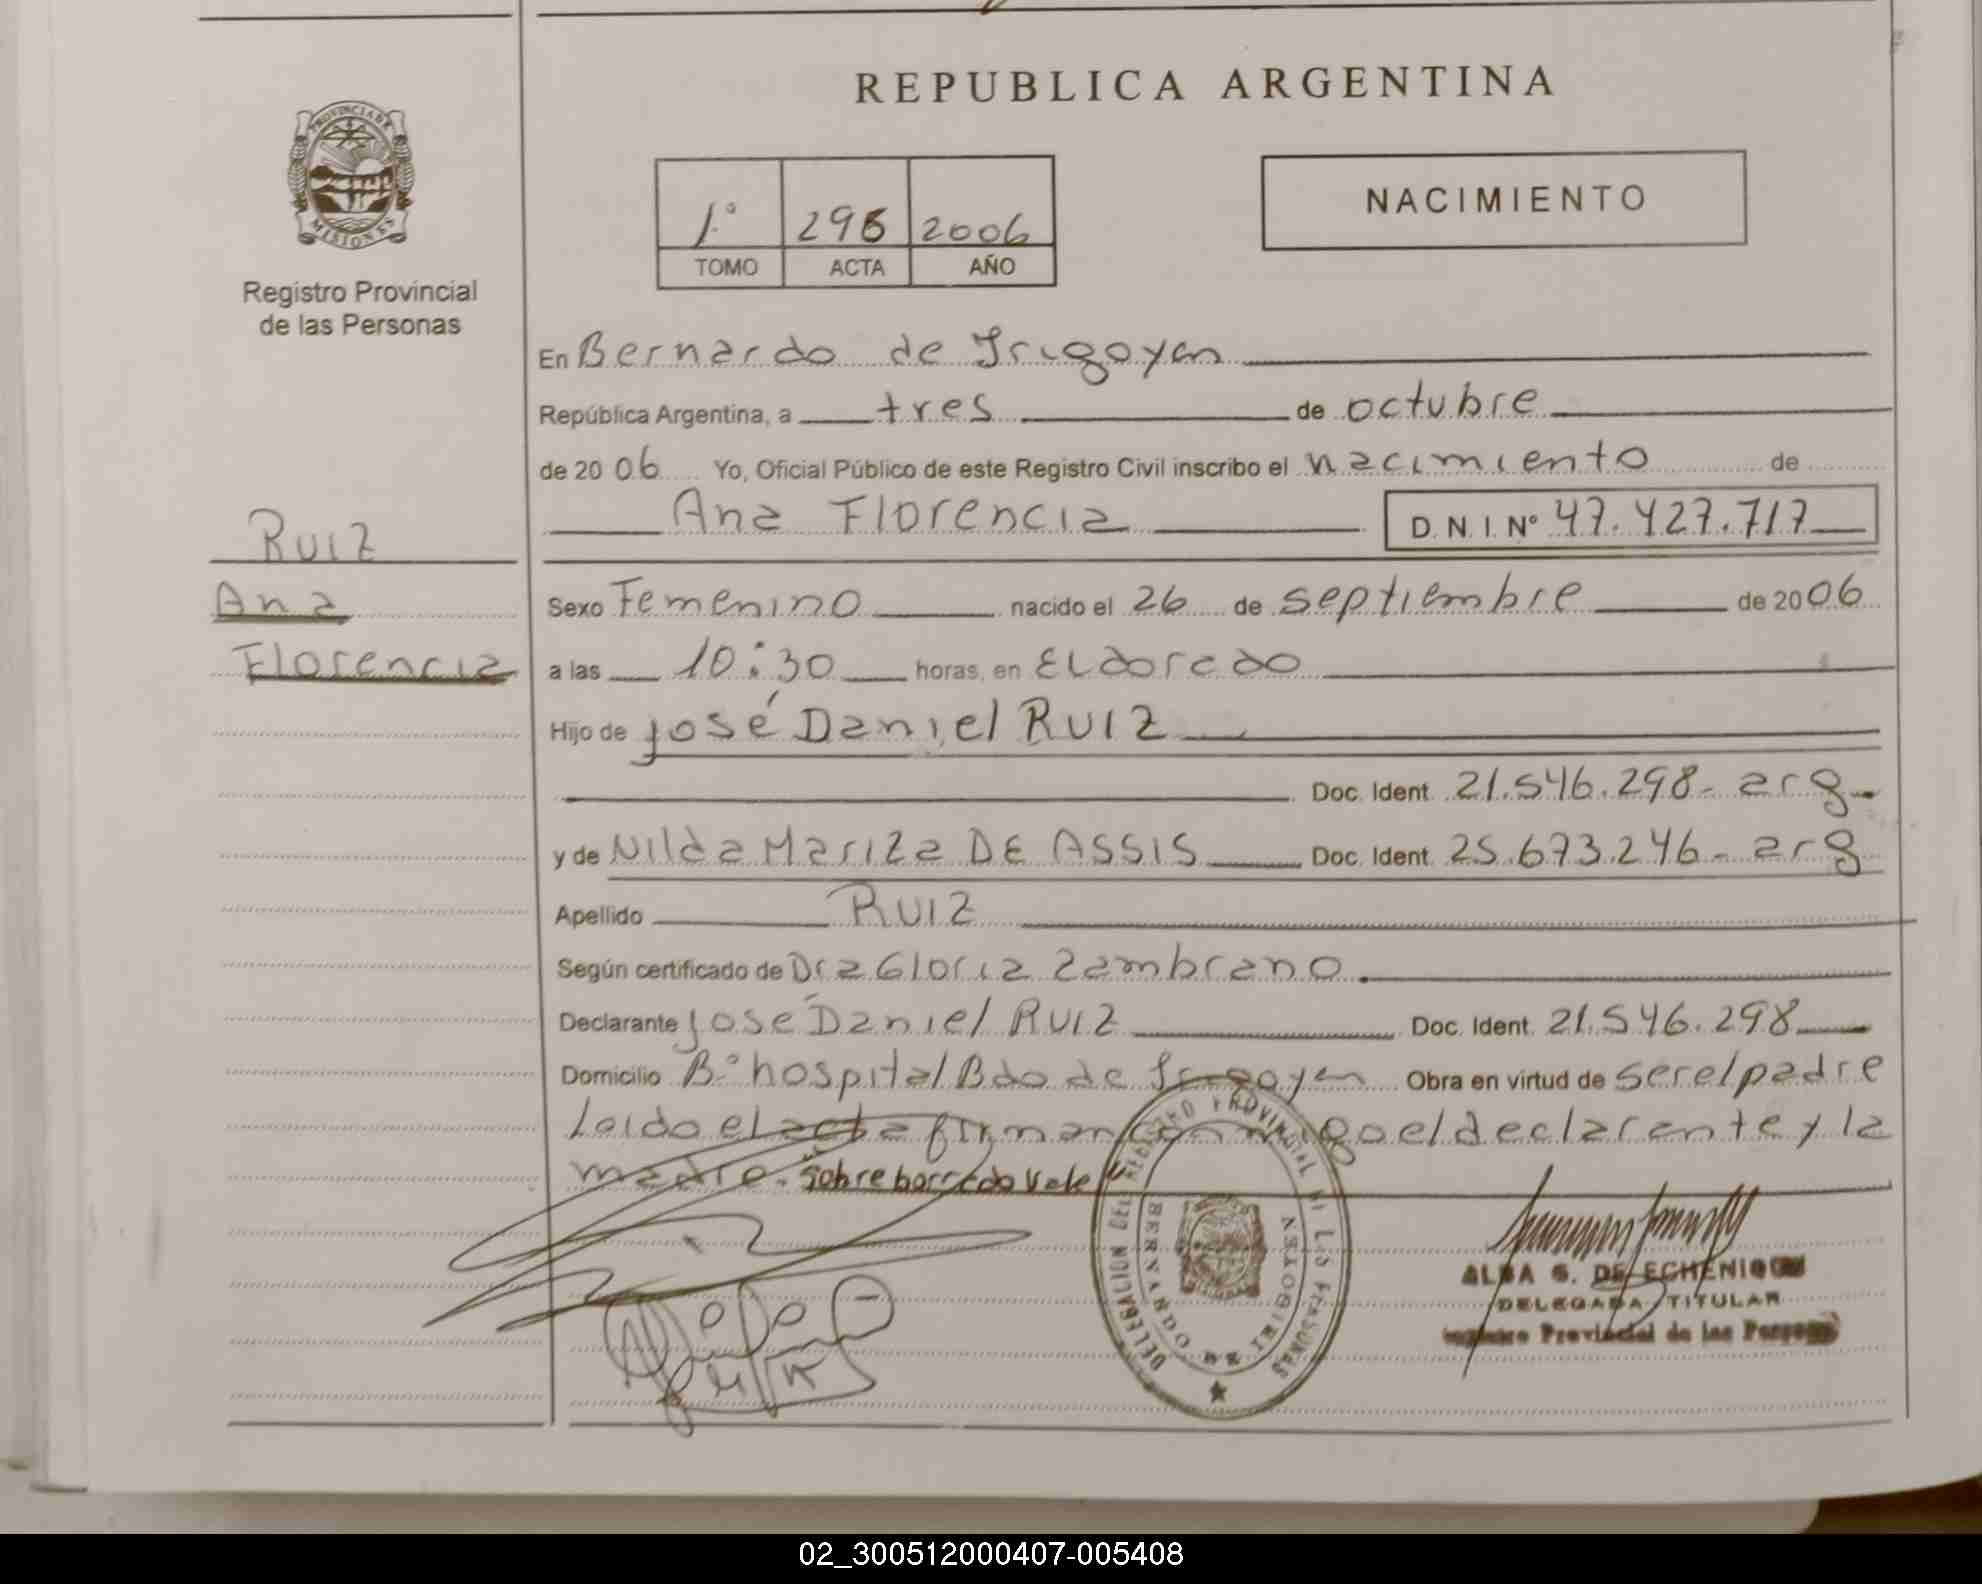 REPUBLICA ARGENTINA
PROVINCIA DE
MISIONES
Registro Provincial
de las Personas
1º 296 2006
TOMO ACTA AÑO
NACIMIENTO
En Bernardo de Irigoyen
República Argentina, a tres de octubre
de 2006 Yo, Oficial Público de este Registro Civil inscribo el nacimiento de
Ana Florencia D.N.I. Nº 47.427.717
Ruiz
Ana
Florencia
Sexo Femenino nacido el 26 de septiembre de 2006
a las 10:30 horas, en Eldorado
Hijo de José Daniel RUIZ
Doc. Ident. 21.546.298- arg-
y de Nilda Mariza DE ASSIS Doc. Ident. 25.673.246- arg
Apellido RUIZ
Según certificado de Dra Gloria Zambrano
Declarante José Daniel RUIZ Doc. Ident. 21.546.298
Domicilio Bº hospital Bdo de Irigoyen Obra en virtud de ser el padre
Leido el acta firman conmigo el declarante y la
madre. "Sobre borrado vale"
DELEGACION DEL REGISTRO PROVINCIAL DE LAS PERSONAS
BERNARDO DE IRIGOYEN
ALBA G. DE ECHENIQUE
DELEGADA TITULAR
Registro Provincial de las Personas
02_300512000407-005408